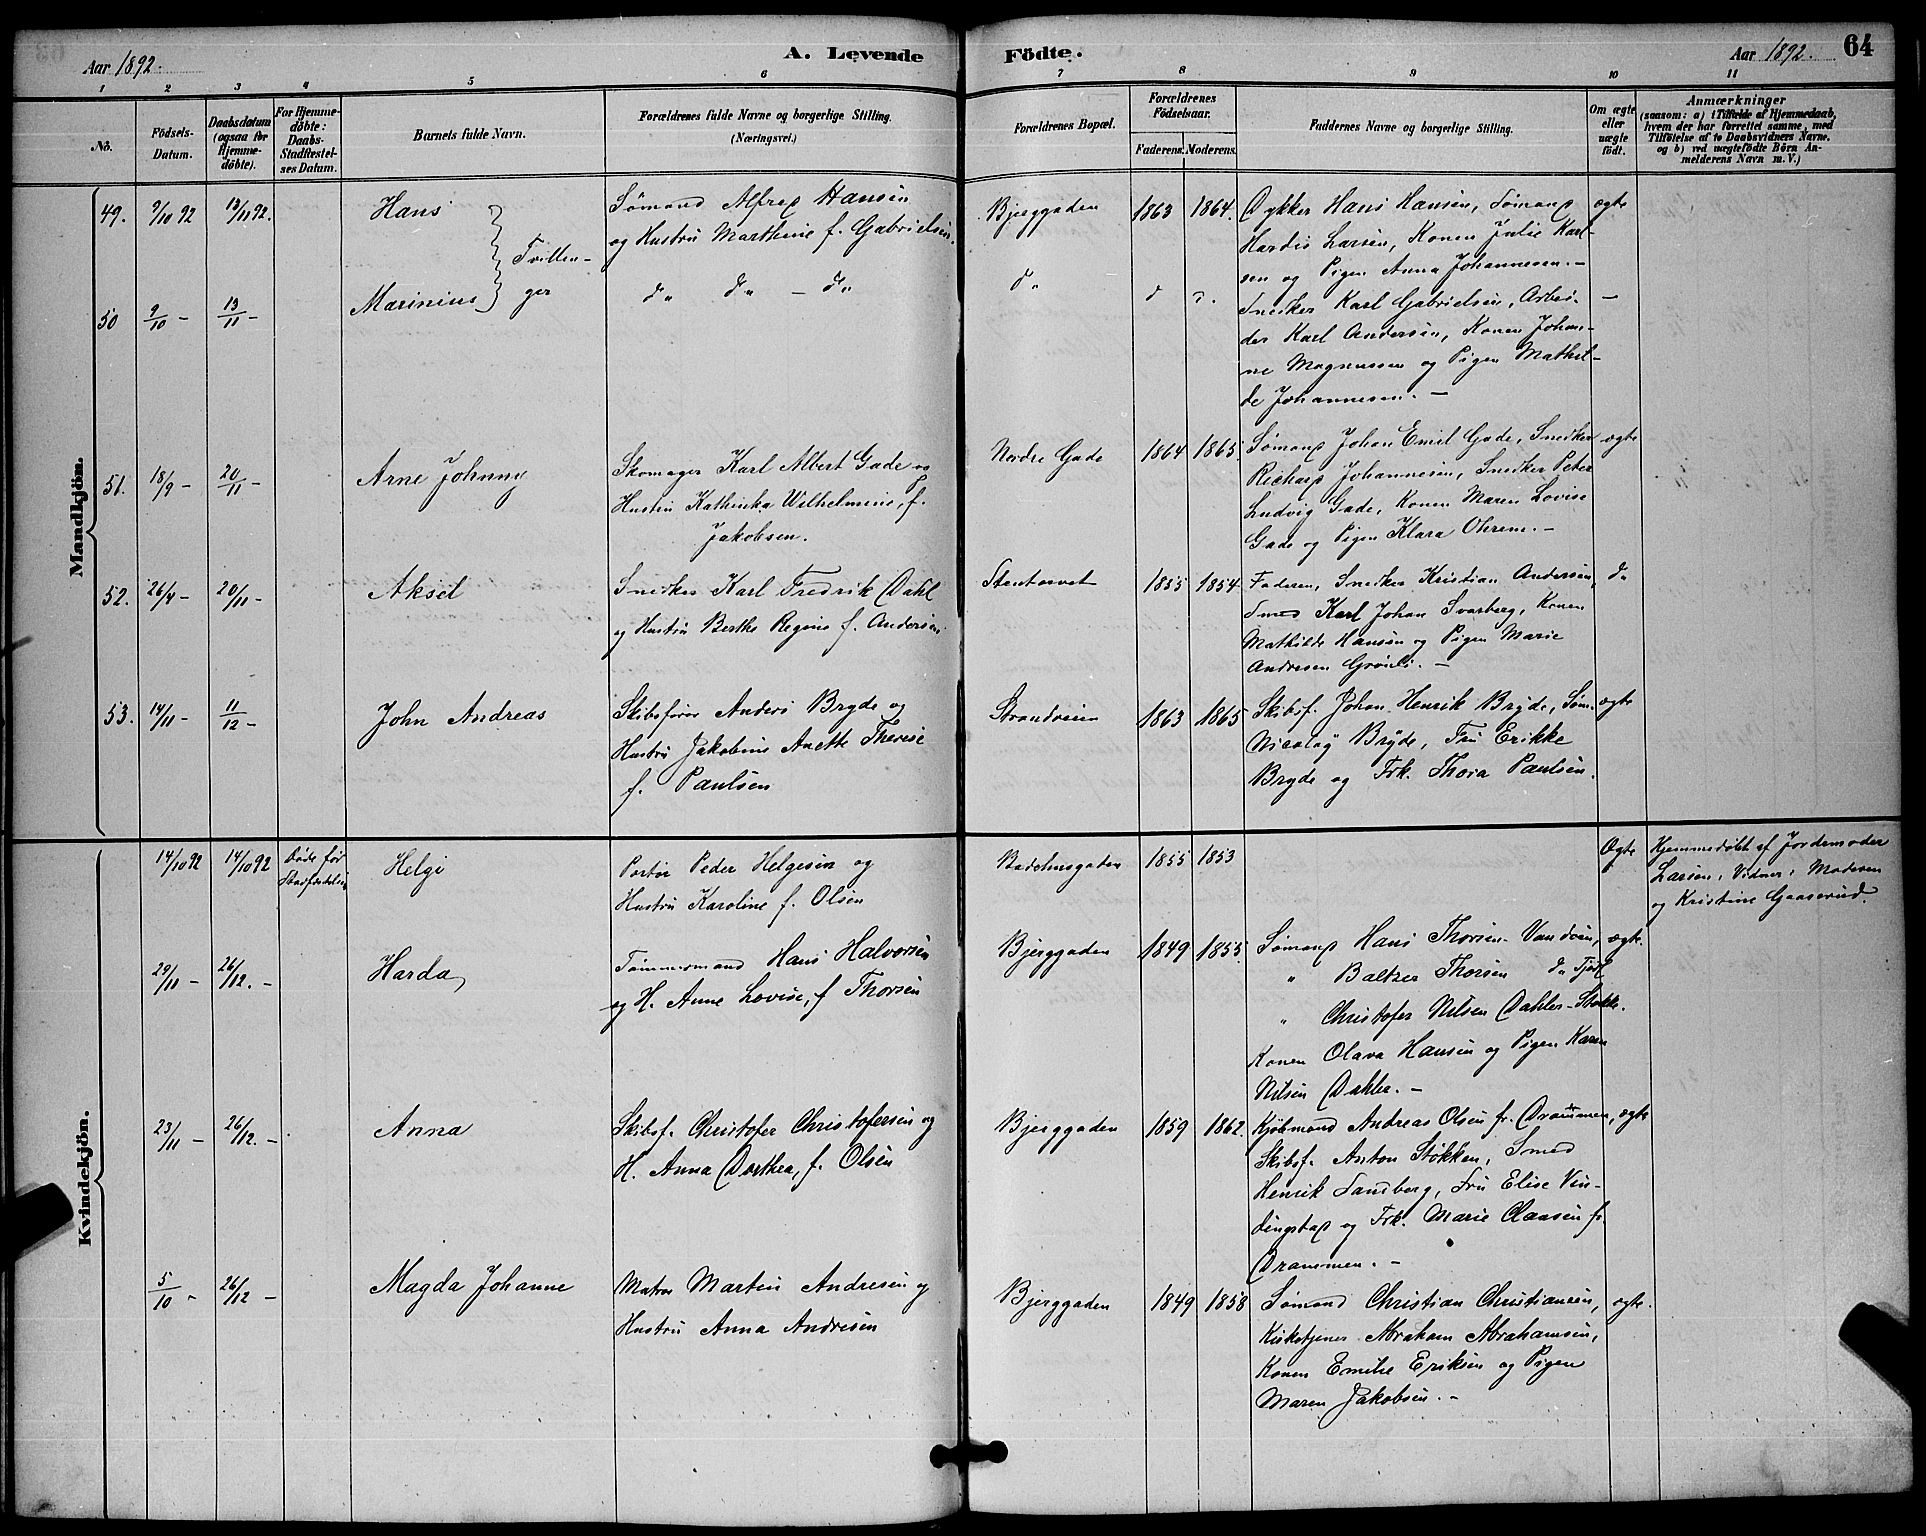 Aar 1892.
A. Levende
Födte.
Aar 1892.
64
1 2 3 4 5 6 7 8 9 10 11
No.
Födsels-
Datum.
Daabsdatum
(ogsaa for
Hjemme-
döbte).
For Hjemme-
döbte:
Daabs-
Stadfæstel-
ses Datum.
Barnets fulde Navn.
Forældrenes fulde Navne og borgerlige Stilling.
(Næringsvei.)
Forældrenes Bopæl.
Forældrenes
Födselsaar.
Faderens. Moderens.
Faddernes Navne og borgerlige Stilling.
Om ægte
eller
uægte
födt.
Anmærkninger
(saasom: a) i Tilfælde af Hjemmedaab,
hvem der har forrettet samme, med
Tilföielse af to Daabsvidners Navne.
og b) ved uægtefödte Börn An-
melderens Navn m. V.)
Mandkjön.
49. 9/10 92 13/11 92. Hans
Tvillen-
Sømand Alfred Hansen
og Hustru Marthine f. Gabrielsen.
Bjerggaden 1863 1864.
Dykker Hans Hansen, Sømand
Hardis Larsen, Konen Julie Karl-
sen og Pigen Anna Johannesen. —
ægte
50 9/10 – 13/11 – Marinius
ger
d„ d„ – d„
d„ d d.
Snedker Karl Gabrielsen, Arbei-
der Karl Andersen, Konen Johan-
ne Magnussen og Pigen Mathil-
de Johannesen. —
—
51. 18/9 – 20/11 – Arne Johnny
Skomager Karl Albert Gade og
Hustru Kathinka Wilhelmine, f.
Jakobsen.
Nordre Gade 1864 1865.
Sømand Johan Emil Gade, Snedker
Richard Johannesen, Snedker Peter
Ludvig Gade, Konen Maren Lovise
Gade og Pigen Klara Ohrem. —
ægte
52. 26/4 – 20/11 – Aksel
Snedker Karl Fredrik Dahl
og Hustru Berthe Regine f. Andersen.
Stentorvet 1855 1854.
Faderen, Snedker Kristian Andersen,
Smed Karl Johan Svarberg, Konen
Mathilde Hansen og Pigen Marie
Andresen Grønli. —
d„
53. 14/11 – 11/12 – John Andreas
Skibsfører Anders Bryde og
Hustru Jakobine Anette Therese
f. Paulsen
Strandveien 1863 1865
Skibsf. Johan Henrik Bryde, Søm.
Nicolay Bryde, Fru Erikke
Bryde og Frk. Thora Paulsen.
ægte
Kvindekjön.
14/10 92 14/10 92 Døde før
Stadfæstelsen
Helge
Portør Peder Helgesen og
Hustru Karoline f. Olsen
1855 1853
Ægte
Hjemmedøbt af Jordemoder
Larsen, Vidner: Moderen
og Kristine Gaaserud.
29/11 – 26/12. – Harda
Tømmermand Hans Halvorsen
og H. Anne Lovise, f Thorsen
Bjerggaden 1849 1855.
Sømand Hans Thorsen Vandøen,
„ Baltzer Thorsen d„ Tjøl
„ Christofer Nilsen Dahler – Stokke.
Konen Olava Hansen og Pigen Karen
Nilsen Dahler. —
ægte.
23/11 – 26/12. – Anna
Skibsf. Christofer Christofersen og
H. Anna Dorthea, f. Olsen
Bjerggaden 1859 1862.
Kjøbmand Andreas Olsen fr. Drammen,
Skibsf. Anton Støkken, Smed
Henrik Sandberg, Fru Elise Vin-
dingstad og Frk. Marie Clausen fr.
Drammen. —
ægte
5/10 – 26/12 – Magda Johanne
Matros Martin Andresen og
Hustru Anna Andresen
Bjerggaden 1849 1858
Sømand Christian Christiansen,
Kirketjener Abraham Abrahamsen,
Konen Emilie Eriksen og Pigen
Maren Jakobsen. —
ægte.